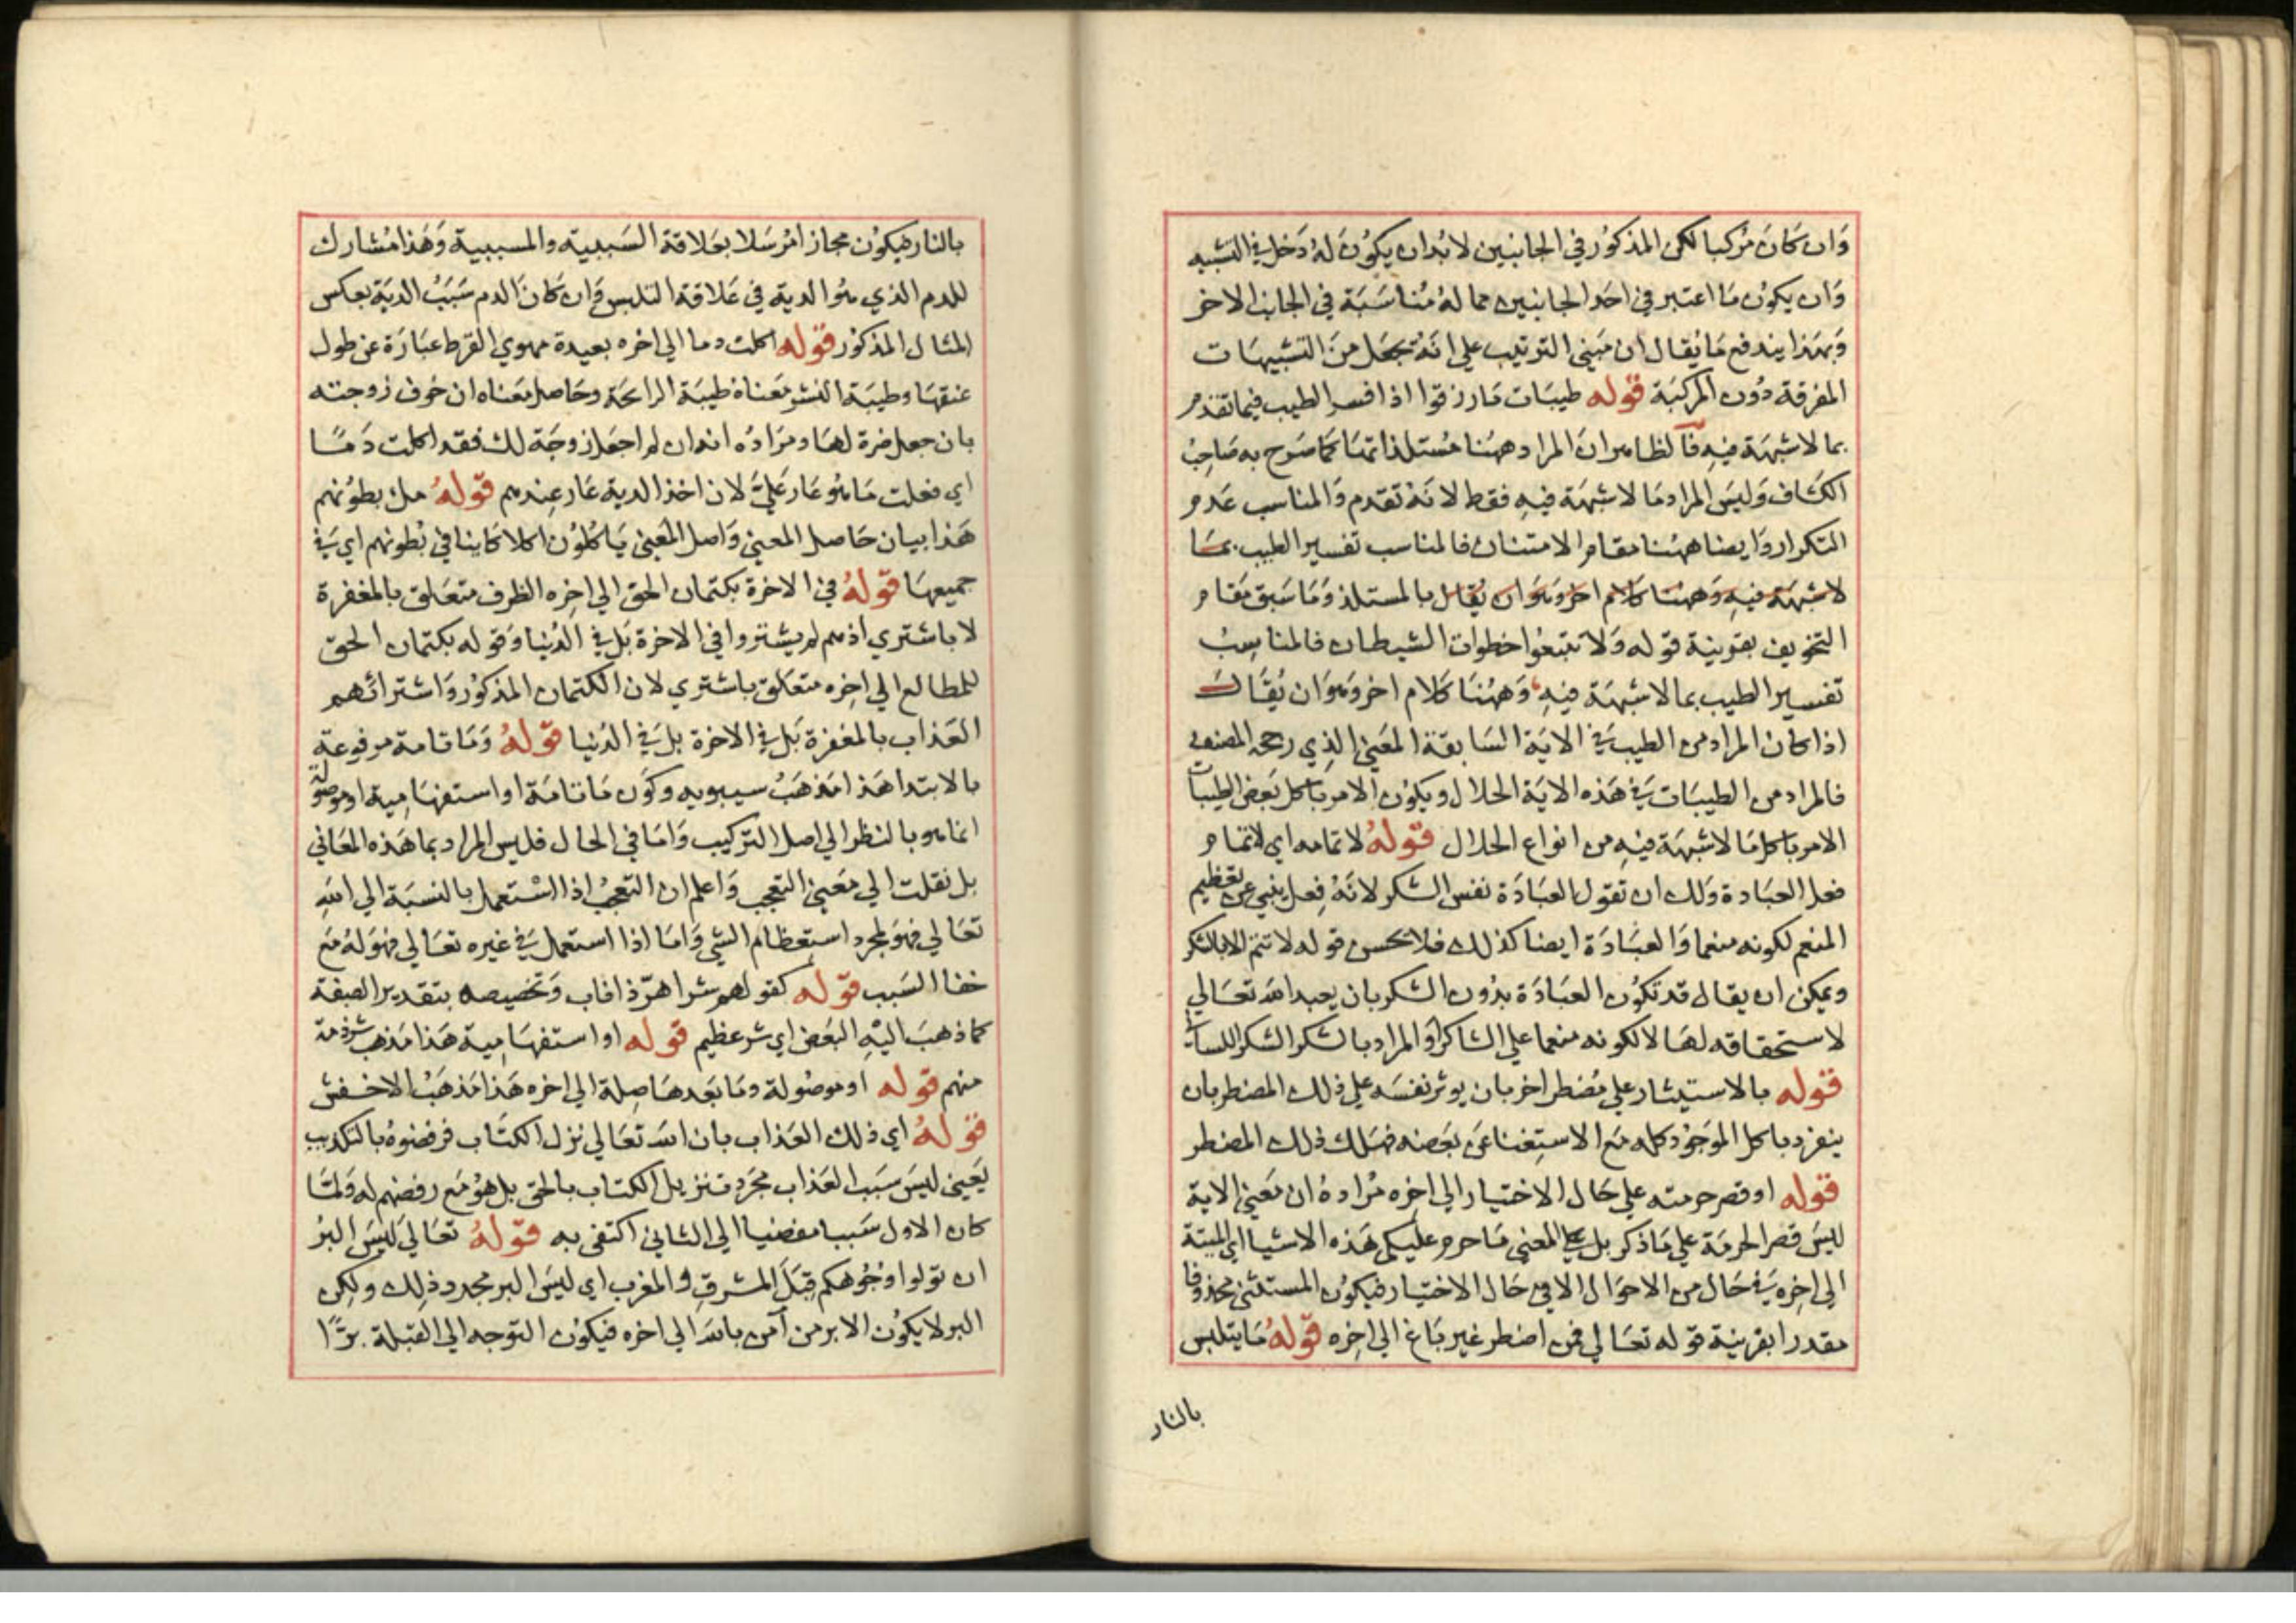 وَان كَانَ مُركبا لكن المذكوُر في الجانبين لا بُد ان يكوُن لهُ دَخل في التشبيه
وَان يكون مَا اعتبر في احَد الجانبين مما لهُ مُناسَبَة في الجانب الاخر
وَبهَذا يندفع مَا يُقال ان مَبني الترتيب علي انَهُ بجعَل منَ التشبيهَات
المفرقة دُون المركبَة قوله طيبَات مَا رزقوا اذا فسر الطيب فيما تقدم
بما لا شبهَة فيهِ فالظاهر انَ المراد ههُنا مُستلذاتهَا كمَا صَرح به صَاحِبُ
الكشاف وَليسَ المراد مَا لا شبهَة فيهِ فقط لانهُ تقدم وَالمناسب عَدم
التكرار وَايضا ههُنا مقام الامتنان فالمناسب تفسير الطيب بمَا
لا شبهَة فيهِ وَههُنا كلام اخر وَهوَ ان يُقال بالمستلذ وَمَا سَبق مَقام
التخويف بقرينة قوله وَلا تتبعُوا خطوات الشيطان فالمناسِبُ
تفسير الطيب بما لا شبهَة فيهِ وَههُنا كَلام اخر وَهوَ ان يُقَالَ
اذا كان المراد من الطيب في الايَة السَابقة المعَني الذِي رجحه المصنف
فالمراد من الطيبَات في هَذه الايَة الحلال ويكوُن الامر باكل بَعض الطيبات
الامر باكل مَا لا شبهَة فيهِ من انواع الحلال قولهُ لا تمامه اي لاتمام
فعل العبَادة وَلك ان تقول العبَادَة نفس الشكر لانَهُ فِعل ينبي عن تعظيم
المنعم لكونه منعما وَالعبَادَة ايضا كذلك فلا يحسن قوله لا تتم الا بالشكر
ويمكن ان يقال قد تكوُن العبَادَة بدُون الشكر بان يعبد الله تعَالي
لاستحقاقه لهَا لا لكونه منعما علي الشاكر اوَ المراد بالشكر الشكر اللسان
قوله بالاستيثار علي مُضطر اخر بان يوثر نفسَه علي ذلك المضطر بان
ينفرد باكل الموَجوُد كله مَع الاستِغنا عَن بعَضه فهَلك ذلك المضطر
قوله او قصر حرمته علي حَال الاختيار الي اخِره مُرادهُ ان مَعني الاية
ليسَ قصر الحرمَة علي مَا ذكر بل علي المعني مَا حرم عليكم هَذه الاشيا اي الميتة
الي اخِره في حَال من الاحوَال الا في حَال الاختيار فيكوُن المستثني محذوفا
مقدرا بقرينة قوله تعَالي فمن اضطر غير بَاغ الي اخِره قولهُ مَا يتلبس
بالنار
بالنار فيكوُن مجازا مُرسَلا بعَلاقة السَببية والمسببية وَهَذا مُشارك
للدم الذي هوُ الدية في عَلاقة التلبس وَان كانَ الدم سَبَبُ الديَة بعكس
المثال المذكوُر قوله اكلت دما الي اخره بعيدة مهوي القرط عبَارَة عن طول
عنقهَا وطيبَة النشر مَعناهُ طيبَة الرائحَة وحَاصل معَناه ان خوف زوجته
بان جعل ضرة لهَا ومرَادُه انه ان لم اجعَل زوجَة لك فقد اكلت دَمًا
اي فعلت مَا هُو عَار عَليَّ لان اخذ الدية عَار عِندهم قولهُ ملء بطوُنهم
هَذا بيان حَاصل المعني وَاصل المعَني يَاكلوُن اكلا كاينا في بُطونهم اي في
جميعهَا قولهُ في الاخرة بكتمان الحق الي اخِره الظرف متعَلق بالمغفرة
لا باشتري اذ هم لم يشتروا في الاخرة بَل في الدُنيا وَقوله بكتمان الحق
للمطالع الي اخِره متعَلق باشتري لان الكتمان المذكوُر وَاشترائهم
العَذاب بالمغفرة بَل في الاخرة بل في الدُنيا قولهُ وَمَا تامة مرفوعة
بالابتدا هَذا مَذهَبُ سيبويه وكوَن مَا تامَة او استفهَامِية او موصولة
انما هو بالنظر الي اصل التركيب وَامَا في الحَال فليس المراد بما هَذه المعَاني
بل نقلت الي مَعني التعجب وَاعلم ان التعَجبُ اذا اسْتعمل بالنسبَة الي اللهِ
تعَالي فهوَ لمجرد استِعظام الشي وَامَا اذا استعمل في غيره تعَالي فهوَ لهُ مَع
خفا السَبب قوله كقولهم شر اهرّ ذا ناب وَتخصيصه بتقدير الصفة
كما ذهبَ اليْهِ البَعض اي شر عظيم قوله او استفهَامِية هَذا مَذهب شرذمة
منهم قوله او موصُولة ومَا بَعدهَا صِلة الي اخره هَذا مَذهَبُ الاخفش
قولهُ اي ذلك العَذاب بان الله تعَالي نزل الكتَاب فرفضوهُ بالتكذيب
يَعني ليسَ سَبب العَذاب مجَرد تنزيل الكتاب بالحق بل هوُ مَع رفضهم له وَلمَّا
كان الاول سَببا مفضيا الي الثاني اكتفي به قولهُ تعَاليَ ليسَ البرُ
ان تولوا وجُوهكم قِبَلَ المشرقِ وَالمغرب اي ليسَ البر مجرد ذلِك ولكن
البر لا يكوُن الا بر من آمن بالله الي اخره فيكوُن التوجه الي القبلة برًّا